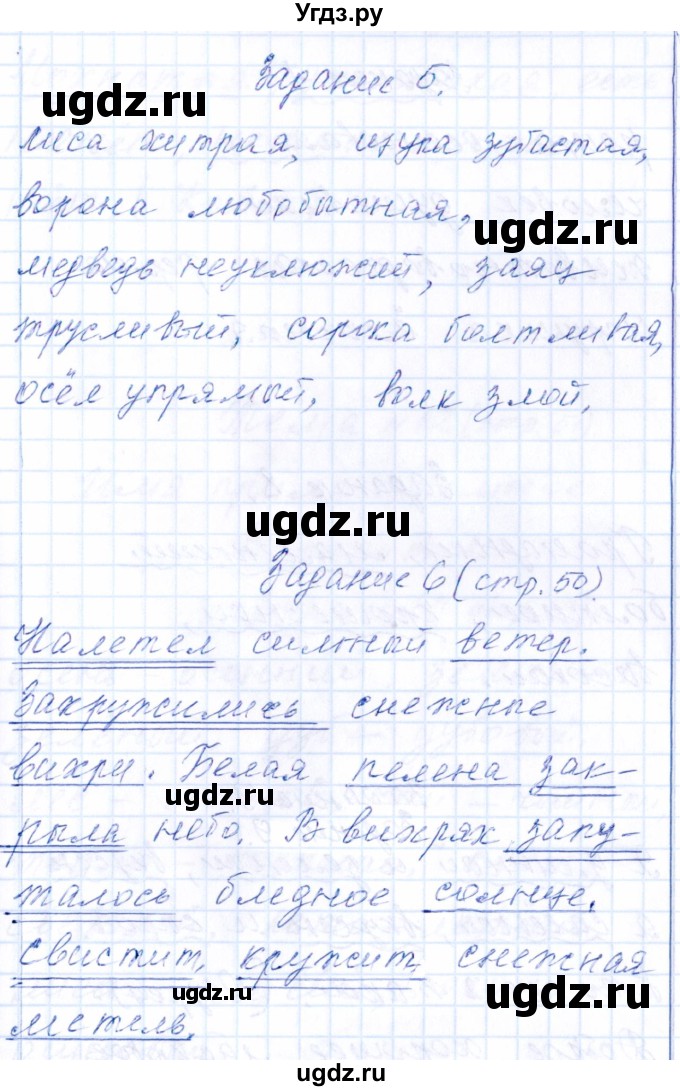 Угдз.ру
Задание 5.
ugdz.ru
лиса хитрая, щука зубастая,
ворона любобытная,
ugdz.ru
медведь неуклюжий, заяц
трусливый, сорока болтливая,
осёл упрямый, волк злой.
ugdz.ru
Задание 6 (стр. 50)
Налетел сильный ветер.
Закружились снежные
вихри. Белая пелена зак-
ugdz.ru
рыла небо. В вихрях запу-
талось бледное солнце.
Свистит, кружит снежная
ugdz.ru
метель.
ugdz.ru